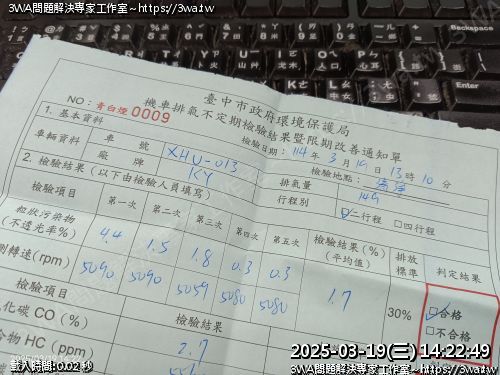 3WA問題解決專家工作室~https://3wa.tw
臺中市政府環境保護局
機車排氣不定期檢驗結果暨限期改善通知單
NO：青白煙 0009
檢驗日期：114 年 3 月 19 日 13 時 10 分
1. 基本資料
檢驗地點：
車輛資料
車號
XHU-013
排氣量
149
廠牌
KY
行程別
二行程 □四行程
2. 檢驗結果（以下由檢驗人員填寫）
檢驗項目
第一次
第二次
第三次
第四次
第五次
檢驗結果(%)
(平均值)
排放
標準
判定結果
粒狀污染物
(不透光率%)
4.4
1.5
1.8
0.3
0.3
1.7
30%
合格
□不合格
測轉速(rpm)
5090
5090
5059
5080
5080
檢驗項目
檢驗結果
化碳 CO(%)
2.7
合物 HC(ppm)
2025-03-19(三) 14:22:49
載入時間: 0.02 秒
3WA問題解決專家工作室~https://3wa.tw